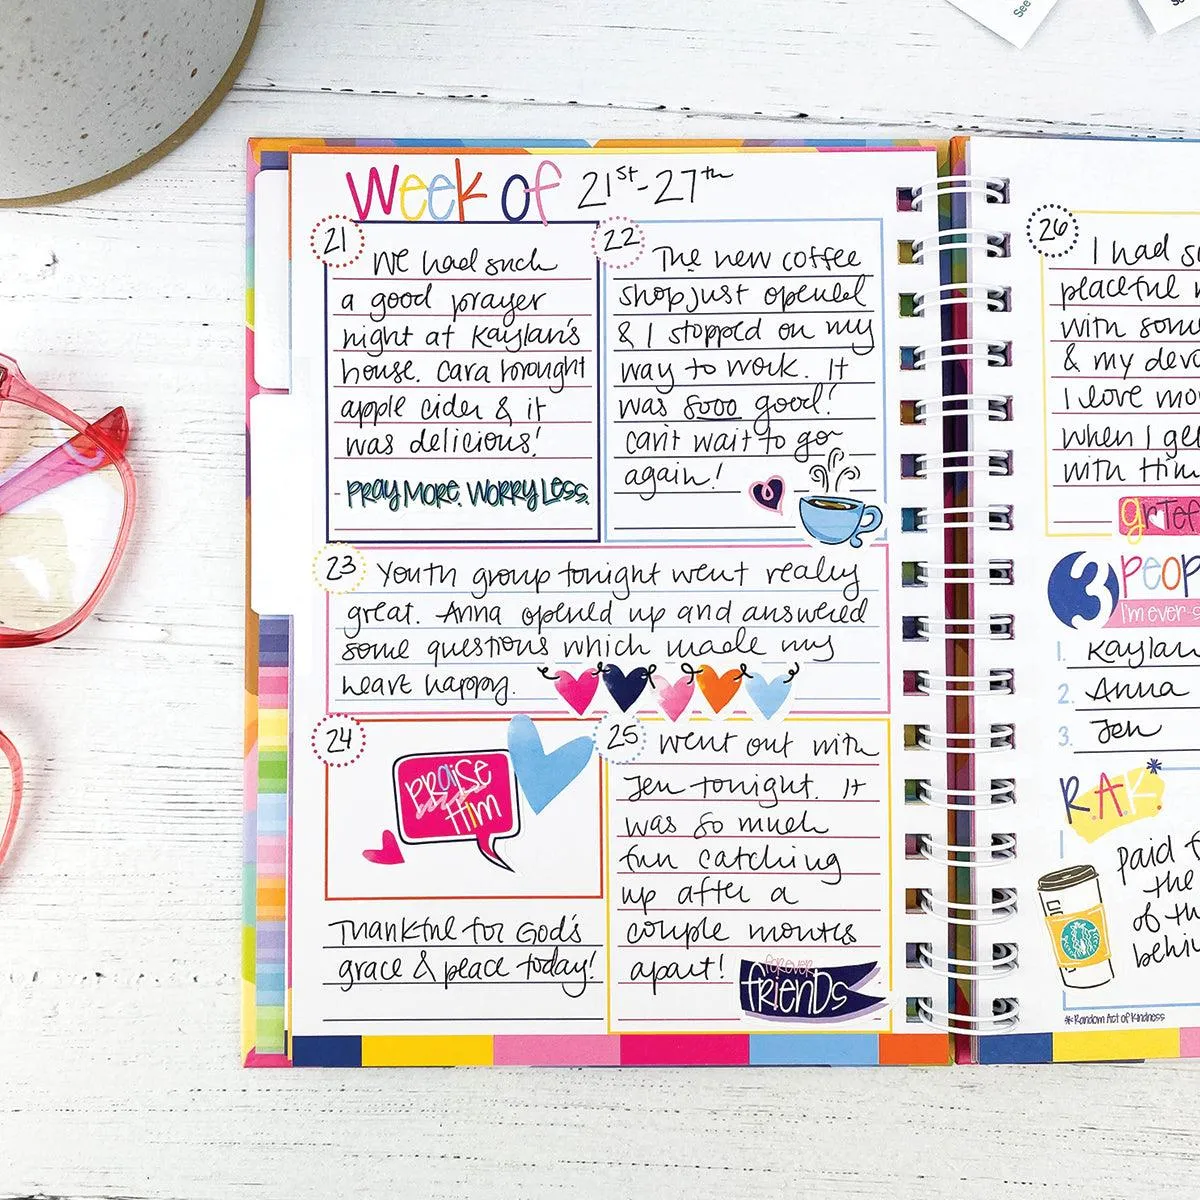 See
Week of 21st-27th
21
We had such
a good prayer
night at Kaylan's
house. Cara brought
apple cider & it
was delicious!
- PRAY MORE. WORRY LESS.
22
The new coffee
shop just opened
& I stopped on my
way to work. It
was sooo good!
can't wait to go
again!
23
Youth group tonight went really
great. Anna opened up and answered
some questions which made my
heart happy.
24
PRAISE
Him
Thankful for God's
grace & peace today!
25
went out with
Jen tonight. It
was so much
fun catching
up after a
couple months
apart!
FOREVER
friENDS
26
I had s
peaceful
with som
& my devo
I love mo
when I ge
with Him
gratef
3 PEOP
I'm ever-s
1. Kaylan
2. Anna
3. Jen
R.A.K.*
Paid f
the
of th
behin
*Random Act of Kindness